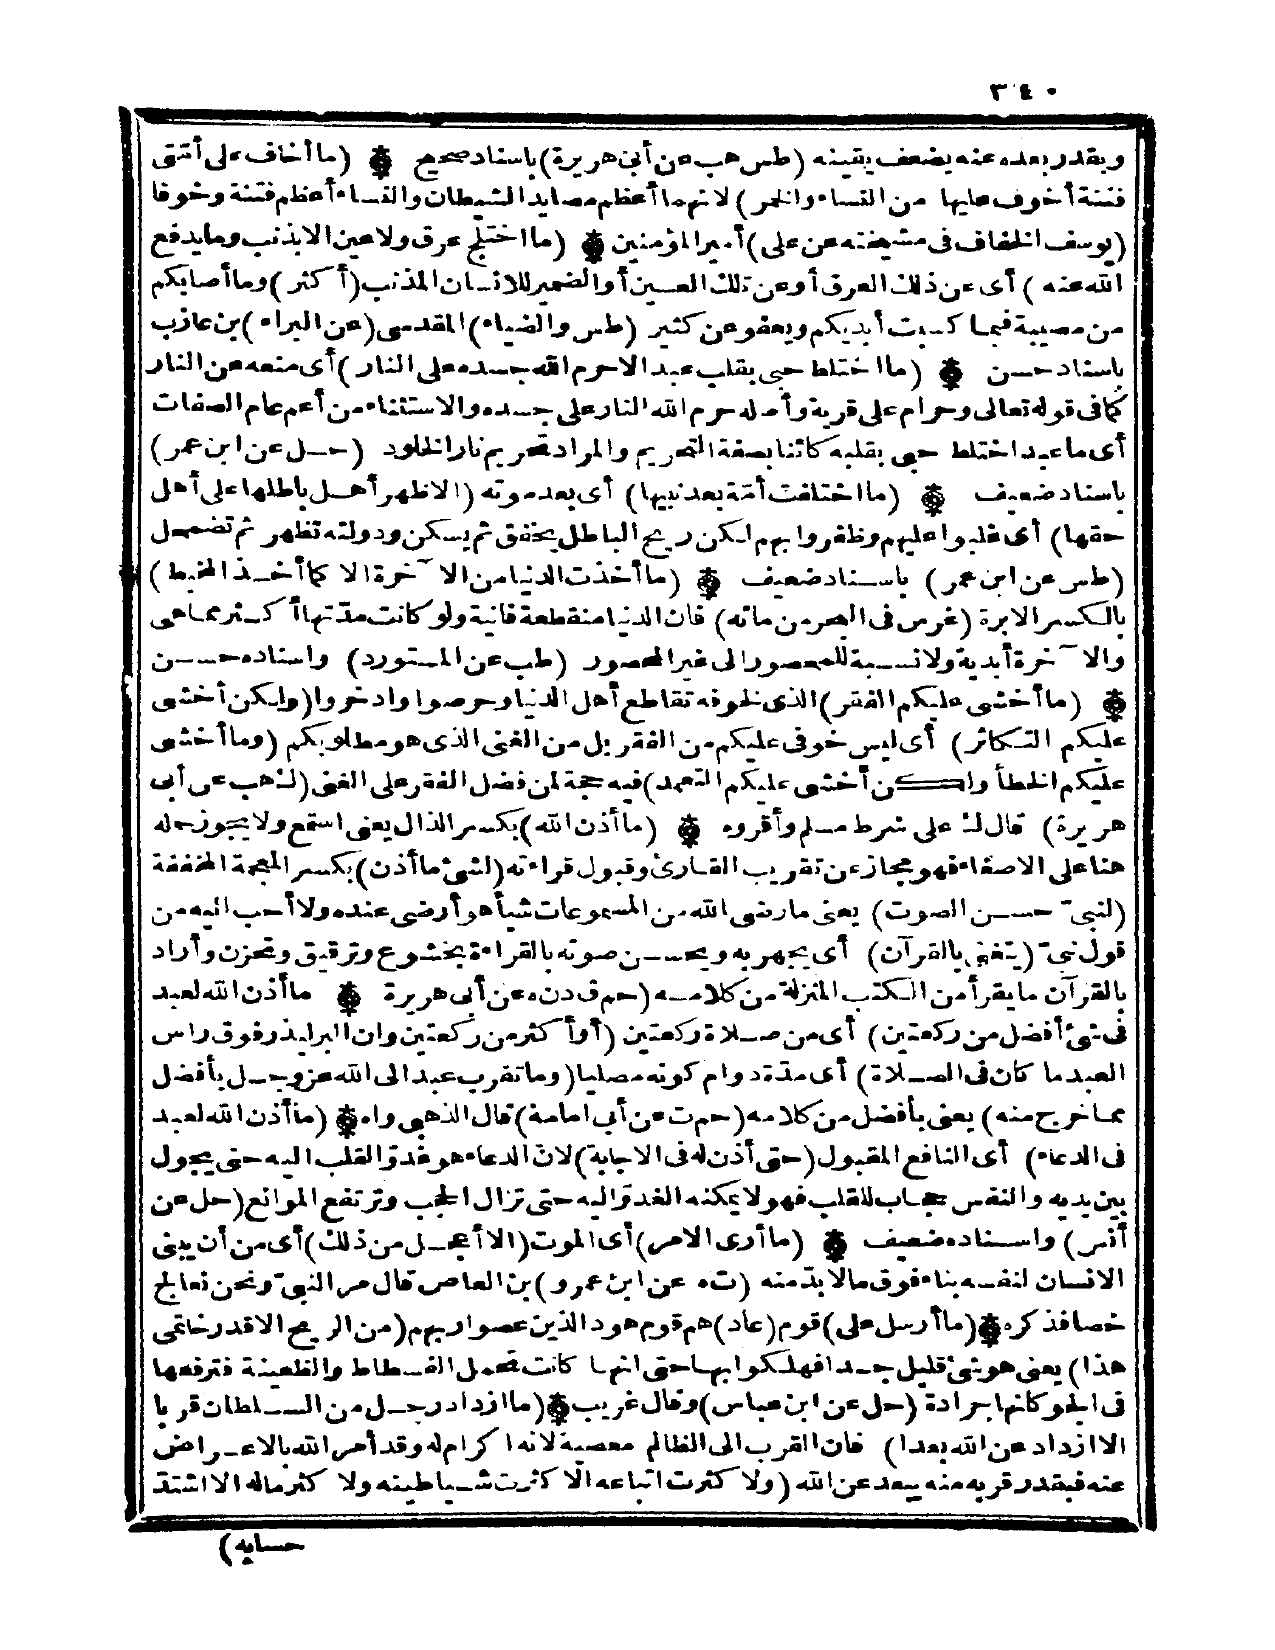 ٣٤٠
وبقدر بعده عنه يضعف يقينه (طس هب عن أبى هريرة) باسناد صحيح ۞ (ما أخاف على أمتى
فتنة أخوف عليها من النساء والخمر) لانهما أعظم مصايد الشيطان والنساء أعظم فتنة وخوفا
(يوسف الخفاف فى مشيخته عن على) أمير المؤمنين ۞ (ما اختلج عرق ولا عين الا بذنب وما يدفع
الله عنه) أى عن ذلك العرق أو عن تلك العين أو الضمير للانسان المذنب (أكثر) وما أصابكم
من مصيبة فيما كسبت أيديكم ويعفو عن كثير (طس والضياء) المقدسى (عن البراء) بن عازب
باسناد حسن ۞ (ما اختلط حبى بقلب عبد الا حرم الله جسده على النار) أى منعه عن النار
كما فى قوله تعالى وحرام على قرية وأصله حرم الله النار على جسده والاستثناء من أعم عام الصفات
أى ما عبد اختلط حبى بقلبه كائنا بصفة التحريم والمراد تحريم نار الخلود (حل عن ابن عمر)
باسناد ضعيف ۞ (ما اختلفت أمة بعد نبيها) أى بعد موته (الا ظهر أهل باطلها على أهل
حقها) أى غلبوا عليهم وظفروا بهم لكن ريح الباطل يخفق ثم يسكن ودولته تظهر ثم تضمحل
(طس عن ابن عمر) باسناد ضعيف ۞ (ما أخذت الدنيا من الا ٓخرة الا كما أخذ المخيط)
بالكسر الابرة (غرس فى البحر من مائه) فان الدنيا منقطعة فانية ولو كانت مدتها أكثر مما هى
والا ٓخرة أبدية ولا نسبة للمحصور الى غير المحصور (طب عن المستورد) واسناده حسن
۞ (ما أخشى عليكم الفقر) الذى بخوفه تقاطع أهل الدنيا وحرصوا وادخروا (ولكن أخشى
عليكم التكاثر) أى ليس خوفى عليكم من الفقر بل من الغنى الذى هو مطلوبكم (وما أخشى
عليكم الخطأ ولكن أخشى عليكم التعمد) فيه حجة لمن فضل الفقر على الغنى (ك هب عن أبى
هريرة) قال ك على شرط مسلم وأقروه ۞ (ما أذن الله) بكسر الذال يعنى استمع ولا يجوز حمله
هنا على الاصغاء فهو مجاز عن تقريب القارئ وقبول قراءته (لشئ ما أذن) بكسر المعجمة المخففة
(لنبىّ حسن الصوت) يعنى ما رضى الله من المسموعات شيأ هو أرضى عنده ولا أحب اليه من
قول نبىّ (يتغنى بالقرآن) أى يجهر به ويحسن صوته بالقراءة بخشوع وترقيق وتحزن وأراد
بالقرآن ما يقرأ من الكتب المنزلة من كلامه (حم ق د ن ه عن أبى هريرة ۞ ما أذن الله لعبد
فى شئ أفضل من ركعتين) أى من صلاة ركعتين (أو أكثر من ركعتين وان البر ليذر فوق راس
العبد ما كان فى الصلاة) أى مدّة دوام كونه مصليا (وما تقرب عبد الى الله عز وجل بأفضل
مما خرج منه) يعنى بأفضل من كلامه (حم ت عن أبى امامة) قال الذهبى واه ۞ (ما أذن الله لعبد
فى الدعاء) أى النافع المقبول (حتى أذن له فى الاجابة) لانّ الدعاء هو غدوّ القلب اليه حتى يجول
بين يديه والنفس حجاب للقلب فهو لا يمكنه الغدوّ اليه حتى تزال الحجب وترتفع الموانع (حل عن
أنس) واسناده ضعيف ۞ (ما أرى الامر) أى الموت (الا أعجل من ذلك) أى من أن يبنى
الانسان لنفسه بناء فوق ما لا بدّ منه (ت ه عن ابن عمرو) بن العاص قال مر النبىّ ونحن نعالج
خصا فذكره ۞ (ما أرسل على) قوم (عاد) هم قوم هود الذين عصوا ربهم (من الريح الا قدر خاتمى
هذا) يعنى هو شئ قليل جدا فهلكوا بها حتى انها كانت تحمل الفسطاط والظعينة فترفعها
فى الجو كانها جرادة (حل عن ابن عباس) وقال غريب ۞ (ما ازداد رجل من السلطان قربا
الا ازداد عن الله بعدا) فان القرب الى الظالم معصية لانه اكرام له وقد أمر الله بالاعراض
عنه فبقدر قربه منه يبعد عن الله (ولا كثرت اتباعه الا كثرت شياطينه ولا كثر ماله الا اشتدّ
حسابه)